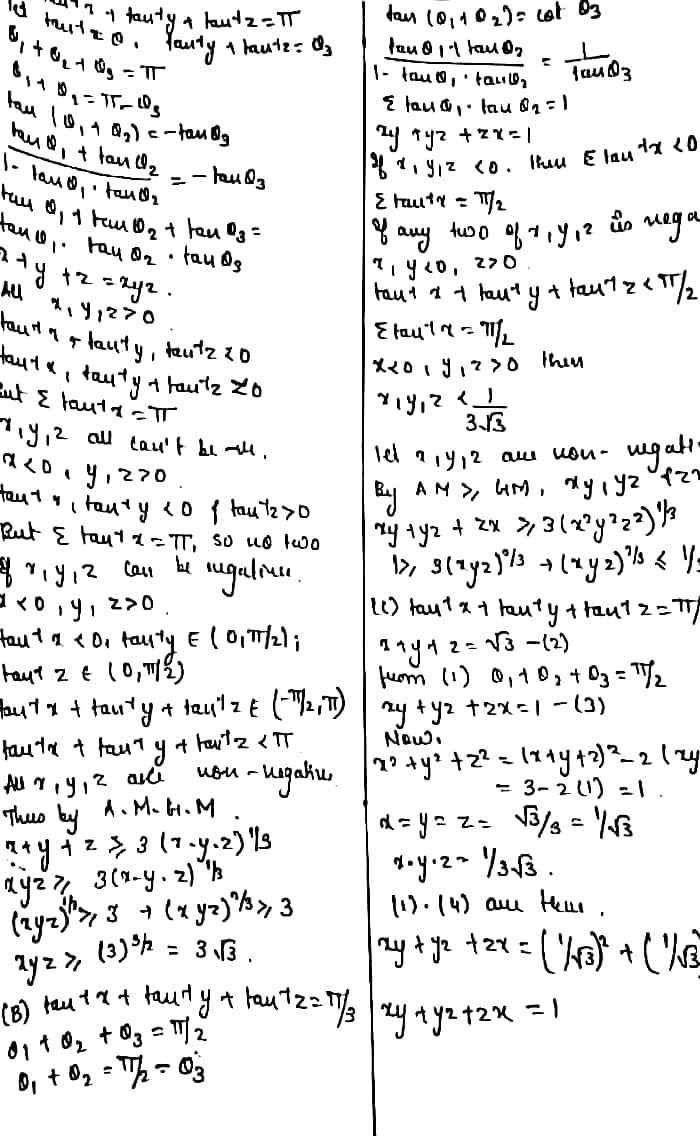 let tan⁻¹x + tan⁻¹y + tan⁻¹z = π
tan⁻¹x = θ₁ tan⁻¹y + tan⁻¹z = θ₃
θ₁ + θ₂ + θ₃ = π
θ₁ + θ₂ = π - θ₃
tan (θ₁ + θ₂) = -tan θ₃
tan θ₁ + tan θ₂ / 1 - tan θ₁ · tan θ₂ = - tan θ₃
tan θ₁ + tan θ₂ + tan θ₃ =
tan θ₁ · tan θ₂ · tan θ₃
x + y + z = xyz.
All x, y, z > 0
tan⁻¹x + tan⁻¹y, tan⁻¹z < 0
tan⁻¹x, tan⁻¹y + tan⁻¹z ≥ 0
But Σ tan⁻¹x = π
x, y, z all can't be -ve.
x < 0, y, z > 0
tan⁻¹x, tan⁻¹y < 0 & tan⁻¹z > 0
But Σ tan⁻¹x = π, so no two
of x, y, z can be negative.
x < 0, y, z > 0.
tan⁻¹x < 0, tan⁻¹y ∈ (0, π/2);
tan⁻¹z ∈ (0, π/2)
tan⁻¹x + tan⁻¹y + tan⁻¹z ∈ (-π/2, π)
tan⁻¹x + tan⁻¹y + tan⁻¹z < π
All x, y, z are non-negative
Thus by A.M. G.M.
x + y + z ≥ 3 (x·y·z)^1/3
xyz ≥ 3(x·y·z)^1/3
(xyz)^2/3 ≥ 3 → (xyz)^2/3 ≥ 3
xyz ≥ (3)^3/2 = 3√3.
(B) tan⁻¹x + tan⁻¹y + tan⁻¹z = π/3
θ₁ + θ₂ + θ₃ = π/2
θ₁ + θ₂ = π/2 - θ₃
tan (θ₁ + θ₂) = cot θ₃
tan θ₁ + tan θ₂ / 1 - tan θ₁ · tan θ₂ = 1 / tan θ₃
Σ tan θ₁ · tan θ₂ = 1
xy + yz + zx = 1
If x, y, z < 0. then Σ tan⁻¹x < 0
Σ tan⁻¹x = π/2
If any two of x, y, z is nega
x, y < 0, z > 0
tan⁻¹x + tan⁻¹y + tan⁻¹z < π/2
Σ tan⁻¹x = π/2
x < 0, y, z > 0 then
x, y, z < 1/3√3
let x, y, z are non-negati
By AM ≥ GM, xy, yz & zx
xy + yz + zx ≥ 3(x²y²z²)^1/3
1 ≥ 3(xyz)^2/3 → (xyz)^2/3 ≤ 1/
(C) tan⁻¹x + tan⁻¹y + tan⁻¹z = π/
x + y + z = √3 - (2)
from (1) θ₁ + θ₂ + θ₃ = π/2
xy + yz + zx = 1 - (3)
Now,
x² + y² + z² = (x+y+z)² - 2(xy
= 3 - 2(1) = 1.
x = y = z = √3/3 = 1/√3
x·y·z = 1/3√3.
(1)·(4) are true.
xy + yz + zx = (1/√3)² + (1/√3)
xy + yz + zx = 1